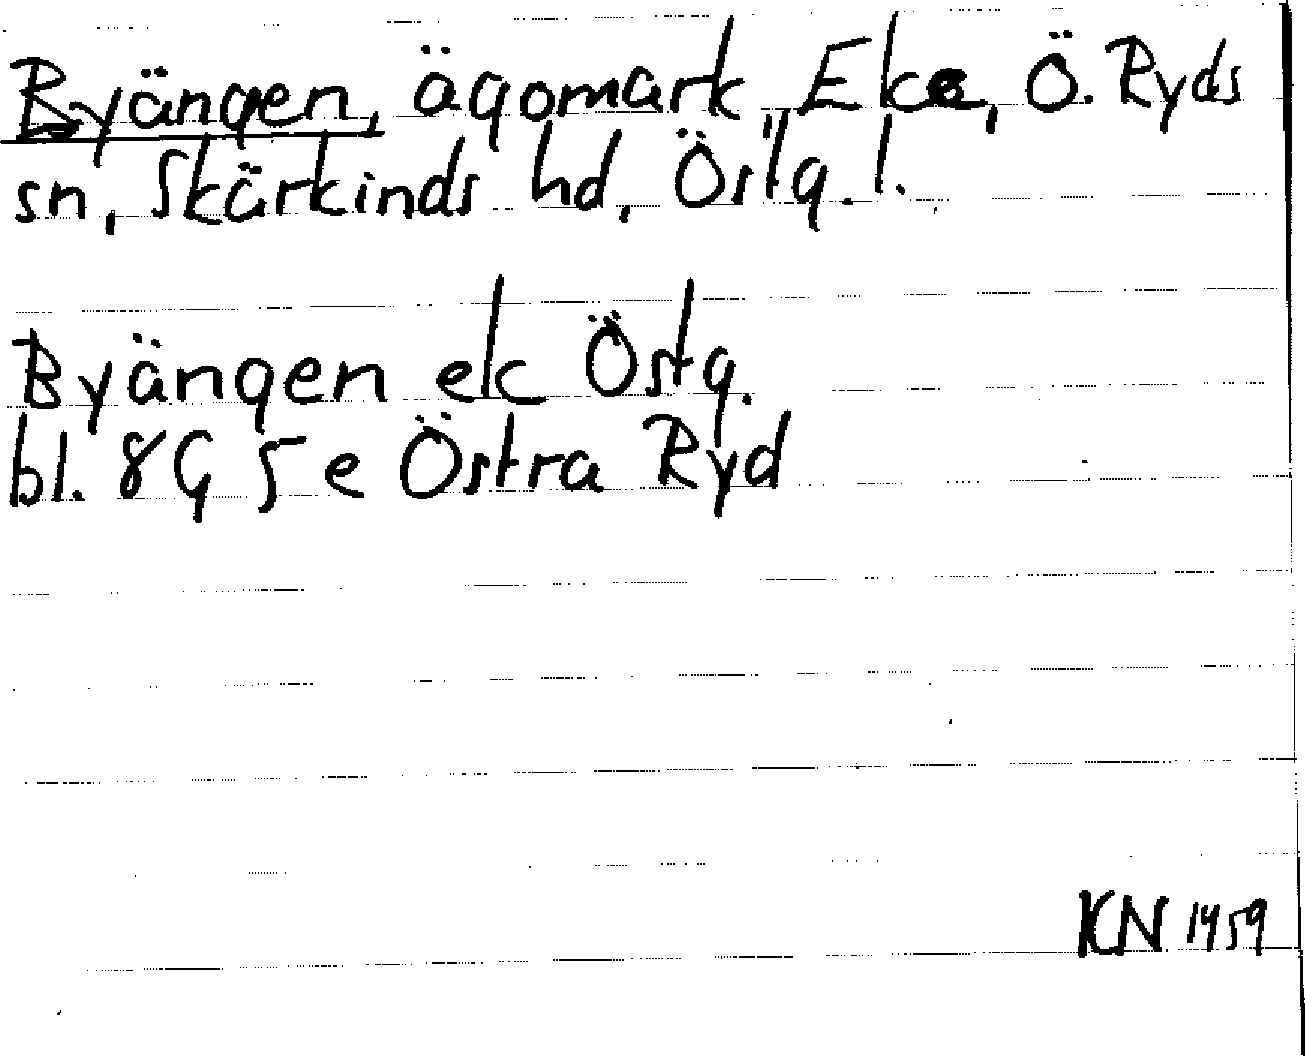 Byängen, ägomark, Eke, Ö. Ryds
sn, Skärkinds hd, Östg. l.
Byängen ek Östg.
bl. 8G 5e Östra Ryd
KN 1959